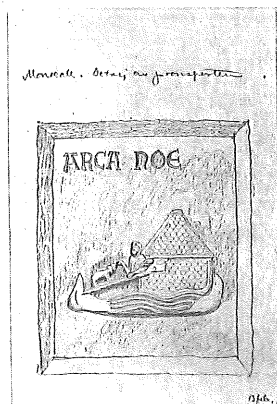 Monreale. Detalj av bronsporten.
ARCA NOE